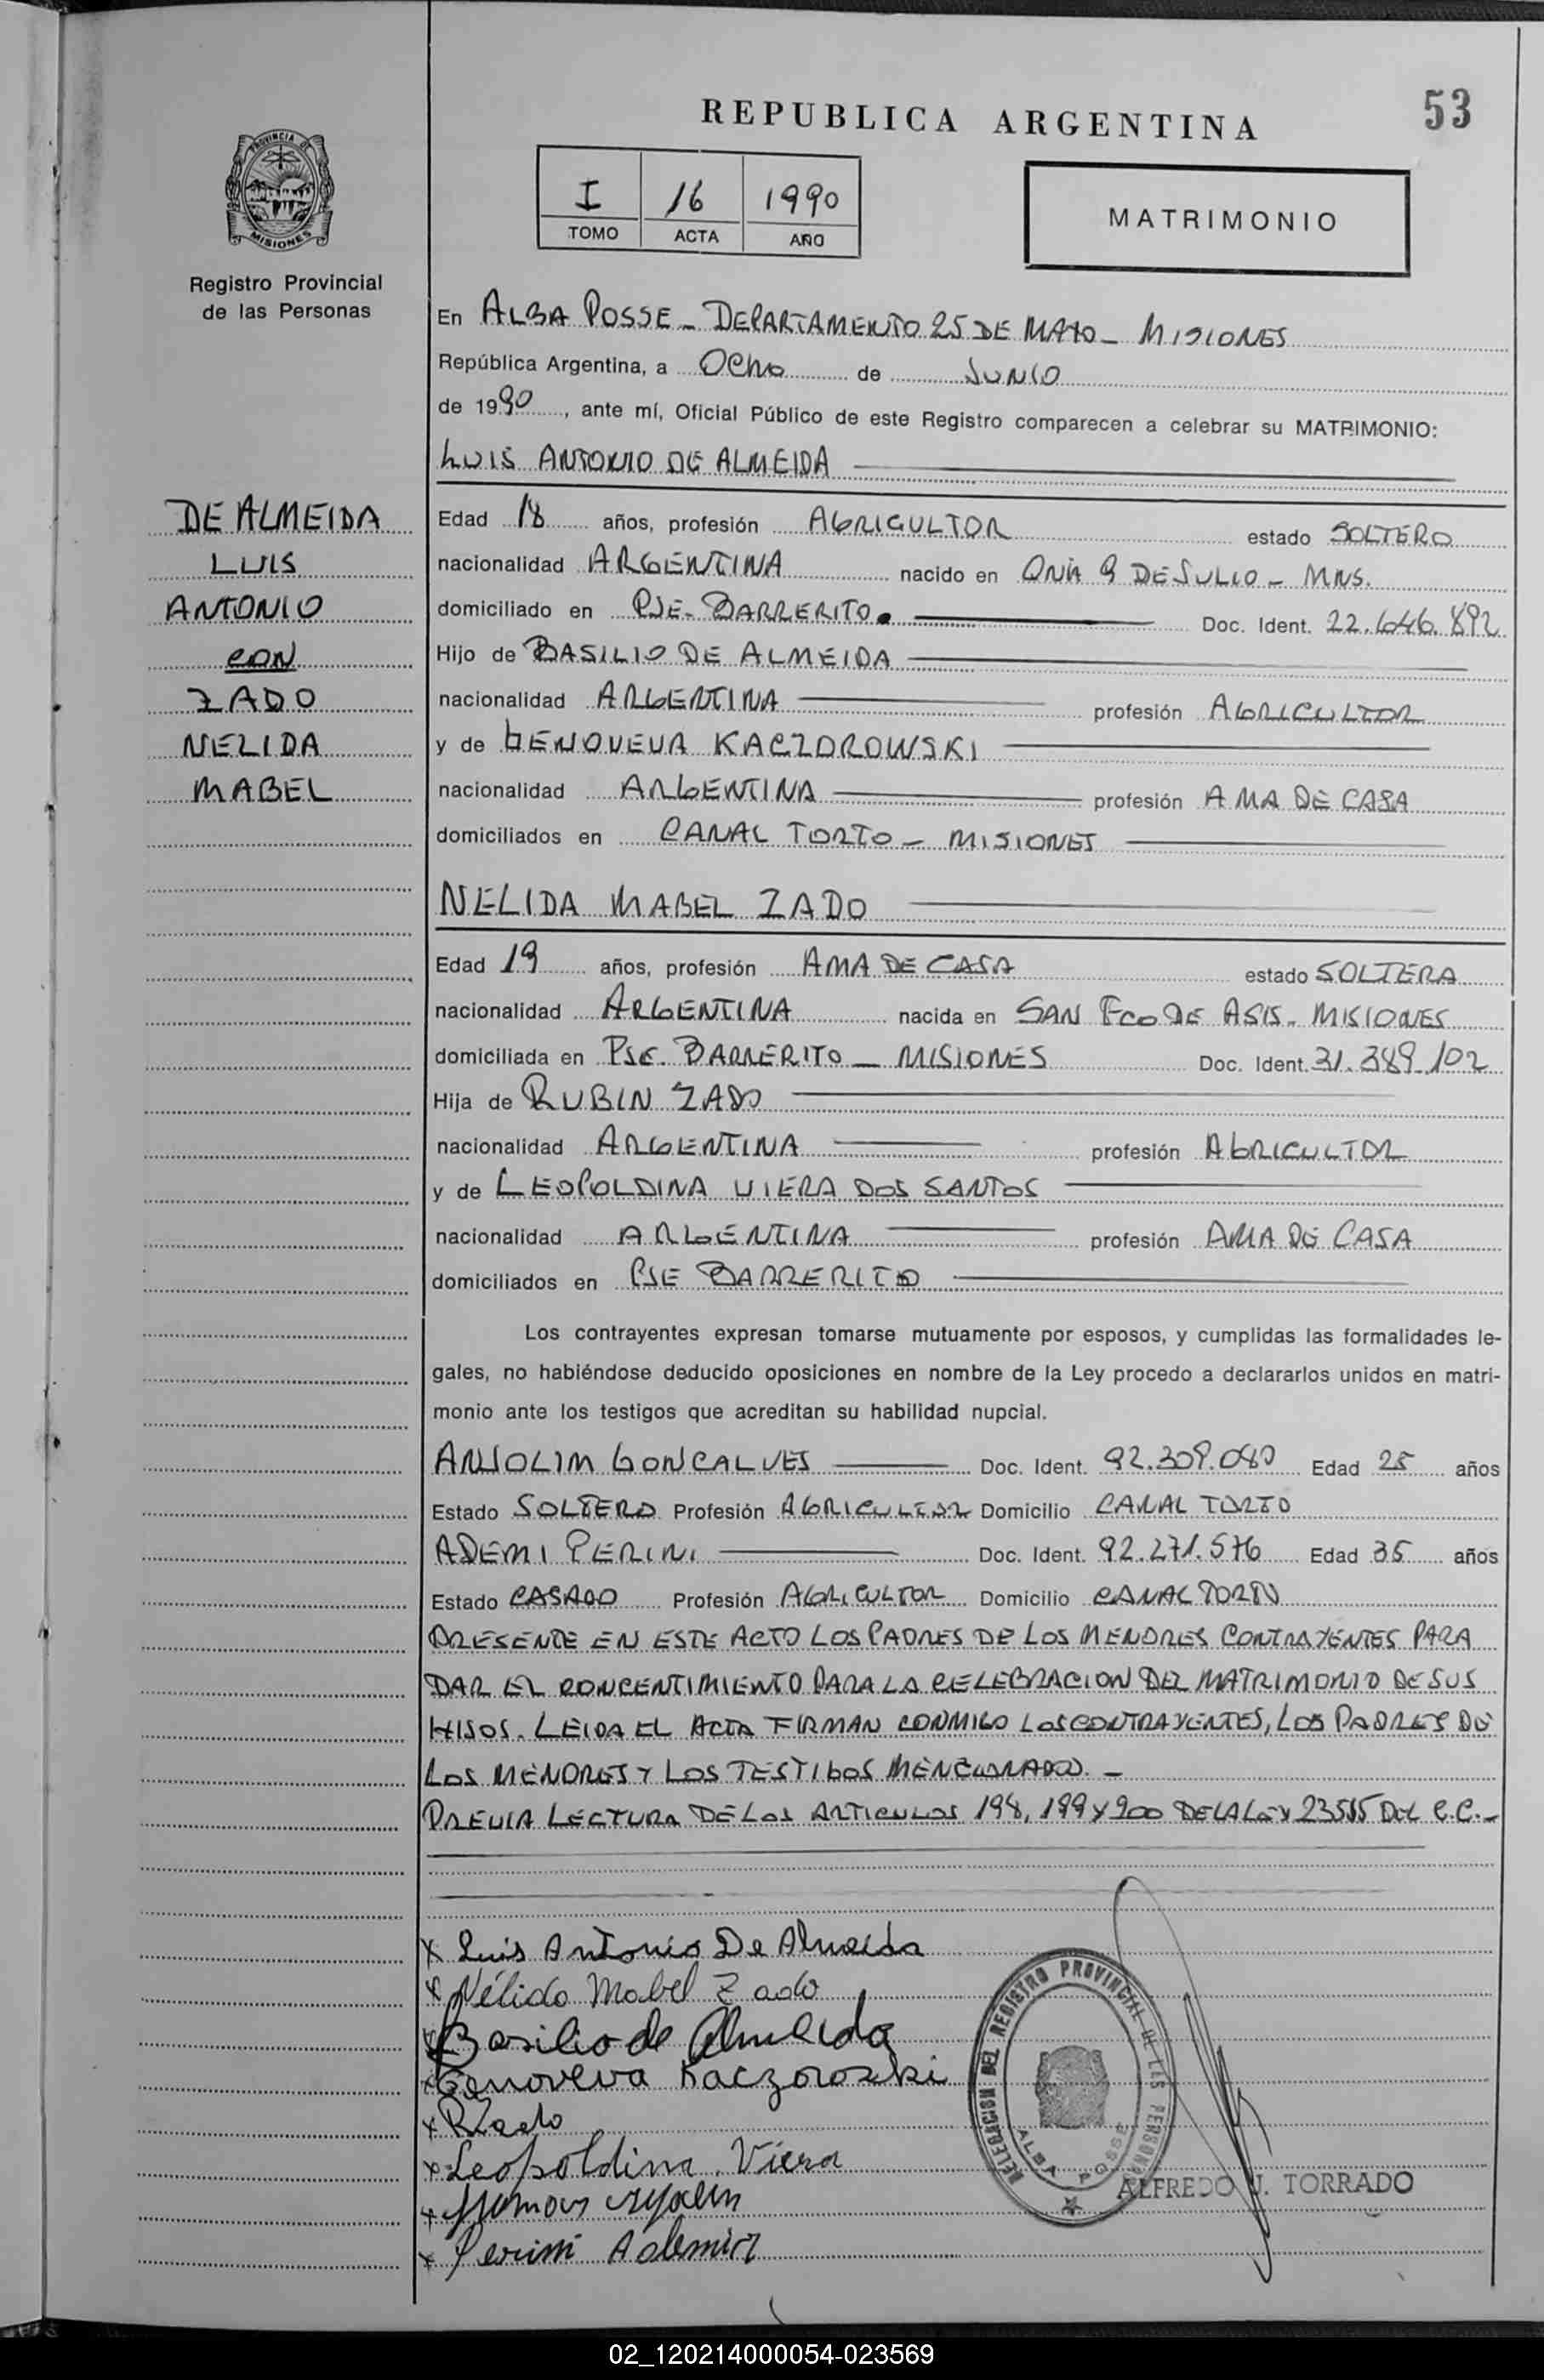 53
REPUBLICA ARGENTINA
I 16 1990
TOMO ACTA AÑO
MATRIMONIO
PROVINCIA DE
MISIONES
Registro Provincial
de las Personas
DE ALMEIDA
LUIS
ANTONIO
CON
ZADO
NELIDA
MABEL
En ALBA POSSE - DEPARTAMENTO 25 DE MAYO - MISIONES
República Argentina, a OCHO de JUNIO
de 1990, ante mí, Oficial Público de este Registro comparecen a celebrar su MATRIMONIO:
LUIS ANTONIO DE ALMEIDA
Edad 18 años, profesión AGRICULTOR estado SOLTERO
nacionalidad ARGENTINA nacido en 9 DE JULIO - MNS.
domiciliado en PJE. BARRERITO. Doc. Ident. 22.646.892
Hijo de BASILIO DE ALMEIDA
nacionalidad ARGENTINA profesión AGRICULTOR
y de GENOVEVA KACZOROWSKI
nacionalidad ARGENTINA profesión AMA DE CASA
domiciliados en CANAL TORTO - MISIONES
NELIDA MABEL ZADO
Edad 19 años, profesión AMA DE CASA estado SOLTERA
nacionalidad ARGENTINA nacida en SAN FCO DE ASIS - MISIONES
domiciliada en PJE. BARRERITO - MISIONES Doc. Ident. 31.389.102
Hija de RUBIN ZADO
nacionalidad ARGENTINA profesión AGRICULTOR
y de LEOPOLDINA VIERA DOS SANTOS
nacionalidad ARGENTINA profesión AMA DE CASA
domiciliados en PJE BARRERITO
Los contrayentes expresan tomarse mutuamente por esposos, y cumplidas las formalidades le-
gales, no habiéndose deducido oposiciones en nombre de la Ley procedo a declararlos unidos en matri-
monio ante los testigos que acreditan su habilidad nupcial.
GONCALVES Doc. Ident. 92.309.080 Edad 25 años
Estado SOLTERO Profesión AGRICULTOR Domicilio CANAL TORTO
ADEMI PERINI Doc. Ident. 92.271.576 Edad 35 años
Estado CASADO Profesión AGRICULTOR Domicilio CANAL TORTO
PRESENTE EN ESTE ACTO LOS PADRES DE LOS MENORES CONTRAYENTES PARA
DAR EL CONCENTIMIENTO PARA LA CELEBRACION DEL MATRIMONIO DE SUS
HIJOS. LEIDA EL ACTA FIRMAN CONMIGO LOS CONTRAYENTES, LOS PADRES DE
LOS MENORES Y LOS TESTIGOS MENCIONADO. -
PREVIA LECTURA DE LOS ARTICULOS 198, 199 Y 200 DE LA LEY 23515 DEL C.C. -
x Luis Antonio De Almeida
x Nélida Mabel Zado
x Basilio de Almeida
x Genoveva Kaczoroski
x RZado
x Leopoldina Viera
x Perini Ademir
DELEGACION DEL REGISTRO PROVINCIAL DE LAS PERSONAS
ALBA POSSE
ALFREDO J. TORRADO
02_120214000054-023569